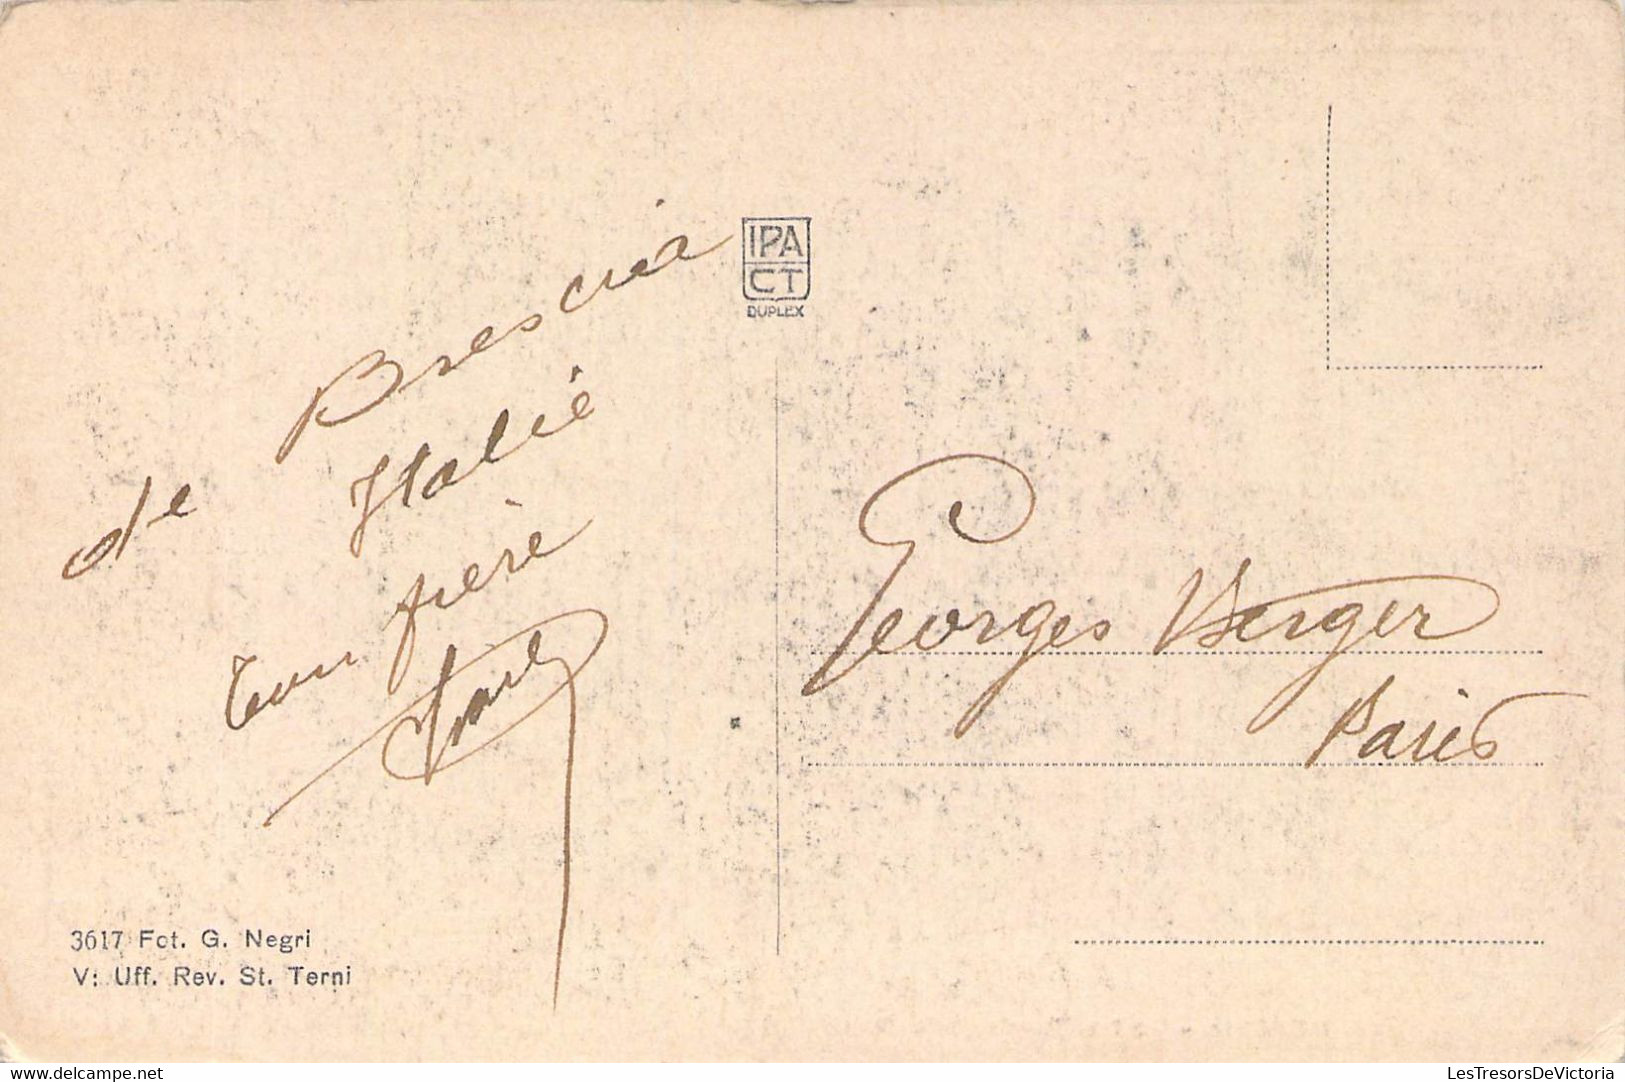 de Brescia
Italie
ton frère
IPA
CT
DUPLEX
Georges Berger
Paris
3617 Fot. G. Negri
V: Uff. Rev. St. Terni
delcampe.net
LesTresorsDeVictoria